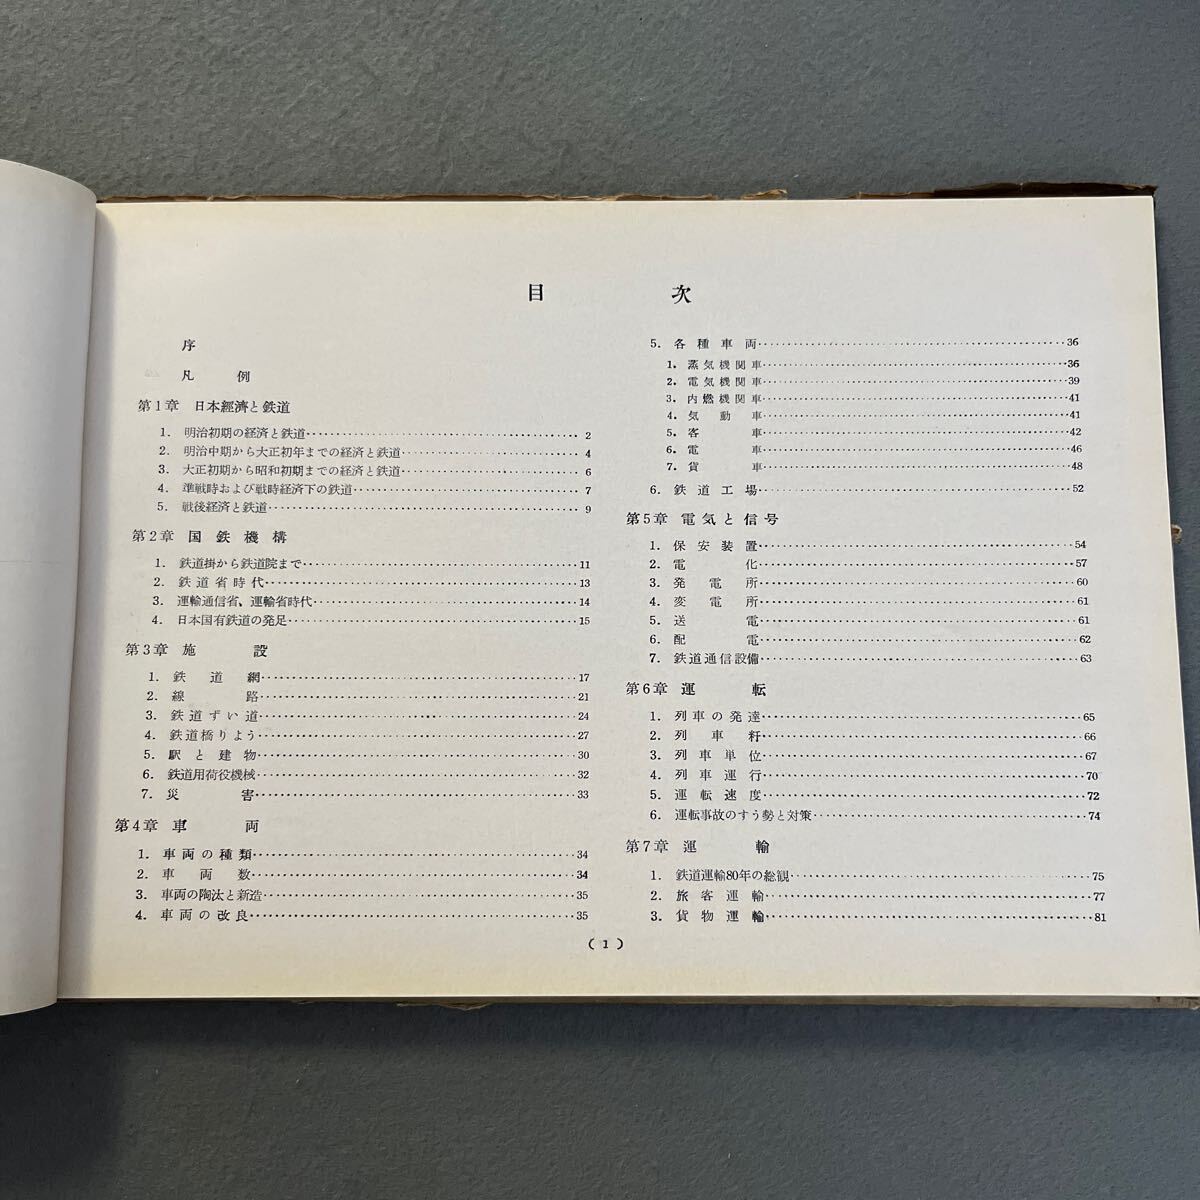 目 次
序
凡 例
第1章 日本経済と鉄道
1. 明治初期の経済と鉄道 2
2. 明治中期から大正初年までの経済と鉄道 4
3. 大正初期から昭和初期までの経済と鉄道 6
4. 準戦時および戦時経済下の鉄道 7
5. 戦後経済と鉄道 9
第2章 国鉄機構
1. 鉄道掛から鉄道院まで 11
2. 鉄道省時代 13
3. 運輸通信省、運輸省時代 14
4. 日本国有鉄道の発足 15
第3章 施設
1. 鉄道網 17
2. 線路 21
3. 鉄道ずい道 24
4. 鉄道橋りよう 27
5. 駅と建物 30
6. 鉄道用荷役機械 32
7. 災害 33
第4章 車両
1. 車両の種類 34
2. 車両数 34
3. 車両の陶汰と新造 35
4. 車両の改良 35
5. 各種車両 36
1. 蒸気機関車 36
2. 電気機関車 39
3. 内燃機関車 41
4. 気動車 41
5. 客車 42
6. 電車 46
7. 貨車 48
6. 鉄道工場 52
第5章 電気と信号
1. 保安装置 54
2. 電化 57
3. 発電所 60
4. 変電所 61
5. 送電 61
6. 配電 62
7. 鉄道通信設備 63
第6章 運転
1. 列車の発達 65
2. 列車粁 66
3. 列車単位 67
4. 列車運行 70
5. 運転速度 72
6. 運転事故のすう勢と対策 74
第7章 運輸
1. 鉄道運輸80年の総観 75
2. 旅客運輸 77
3. 貨物運輸 81
(1)